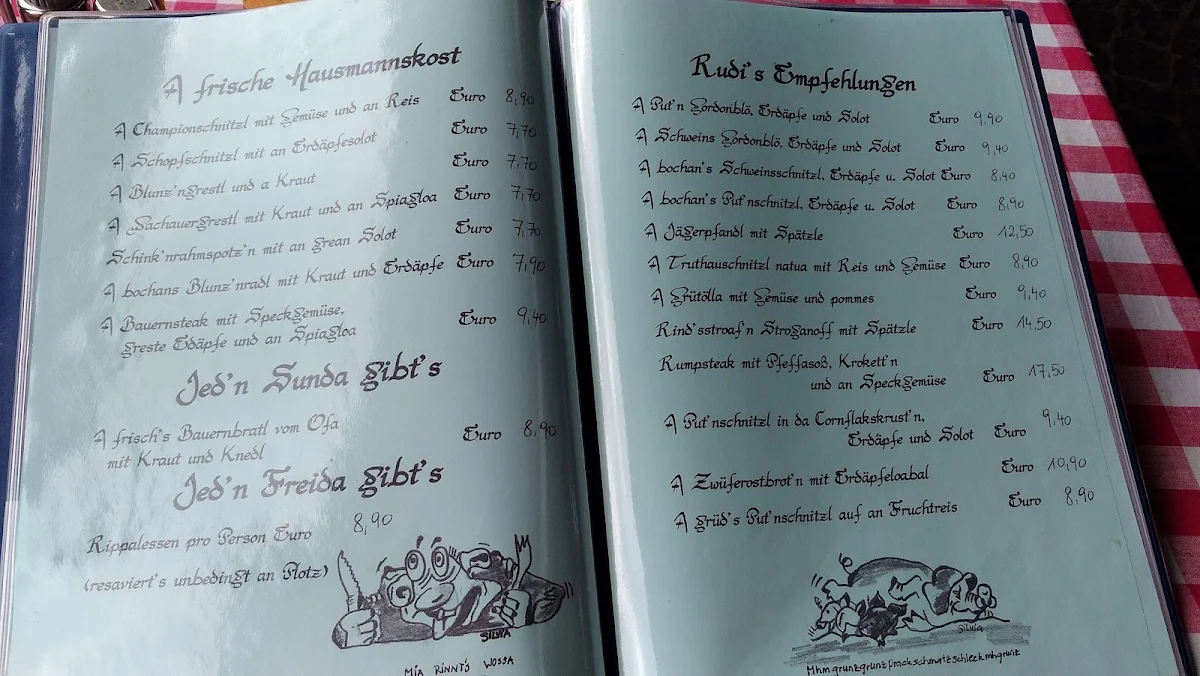 A frische Hausmannskost
A Championschnitzl mit Gemüse und an Reis Euro 8,90
A Schopfschnitzl mit an Erdäpfesolot Euro 7,70
A Blunz'ngrestl und a Kraut Euro 7,70
A Sachauergrestl mit Kraut und an Spiagloa Euro 7,70
Schink'nrahmspotz'n mit an grean Solot Euro 7,70
A bochans Blunz'nradl mit Kraut und Erdäpfe Euro 7,90
A Bauernsteak mit Speckgemüse, Euro 9,40
greste Edäpfe und an Spiagloa
Jed'n Sunda gibt's
A frisch's Bauernbratl vom Ofa Euro 8,90
mit Kraut und Knedl
Jed'n Freida gibt's
Rippalessen pro Person Euro 8,90
(resaviert's unbedingt an Plotz)
SILVIA
MIA RINNT'S WOSSA
Rudi's Empfehlungen
A Put'n Gordonblö, Erdäpfe und Solot Euro 9,90
A Schweins Gordonblö, Erdäpfe und Solot Euro 9,40
A bochan's Schweinsschnitzl, Erdäpfe u. Solot Euro 8,40
A bochan's Put'nschnitzl, Erdäpfe u. Solot Euro 8,90
A Jägerpfandl mit Spätzle Euro 12,50
A Truthauschnitzl natua mit Reis und Gemüse Euro 8,90
A Grütölla mit Gemüse und pommes Euro 9,40
Rind'sstroaf'n Stroganoff mit Spätzle Euro 14.50
Rumpsteak mit Pfeffasoß, Krokett'n
und an Speckgemüse Euro 17,50
A Put'nschnitzl in da Cornflakskrust'n,
Erdäpfe und Solot Euro 9,40
A Zwüferostbrot'n mit Erdäpfeloabal Euro 10,90
A grüd's Put'nschnitzl auf an Fruchtreis Euro 8,90
Silvia
Mhm grunzgrunz prackschmatzschleckmhgrunz